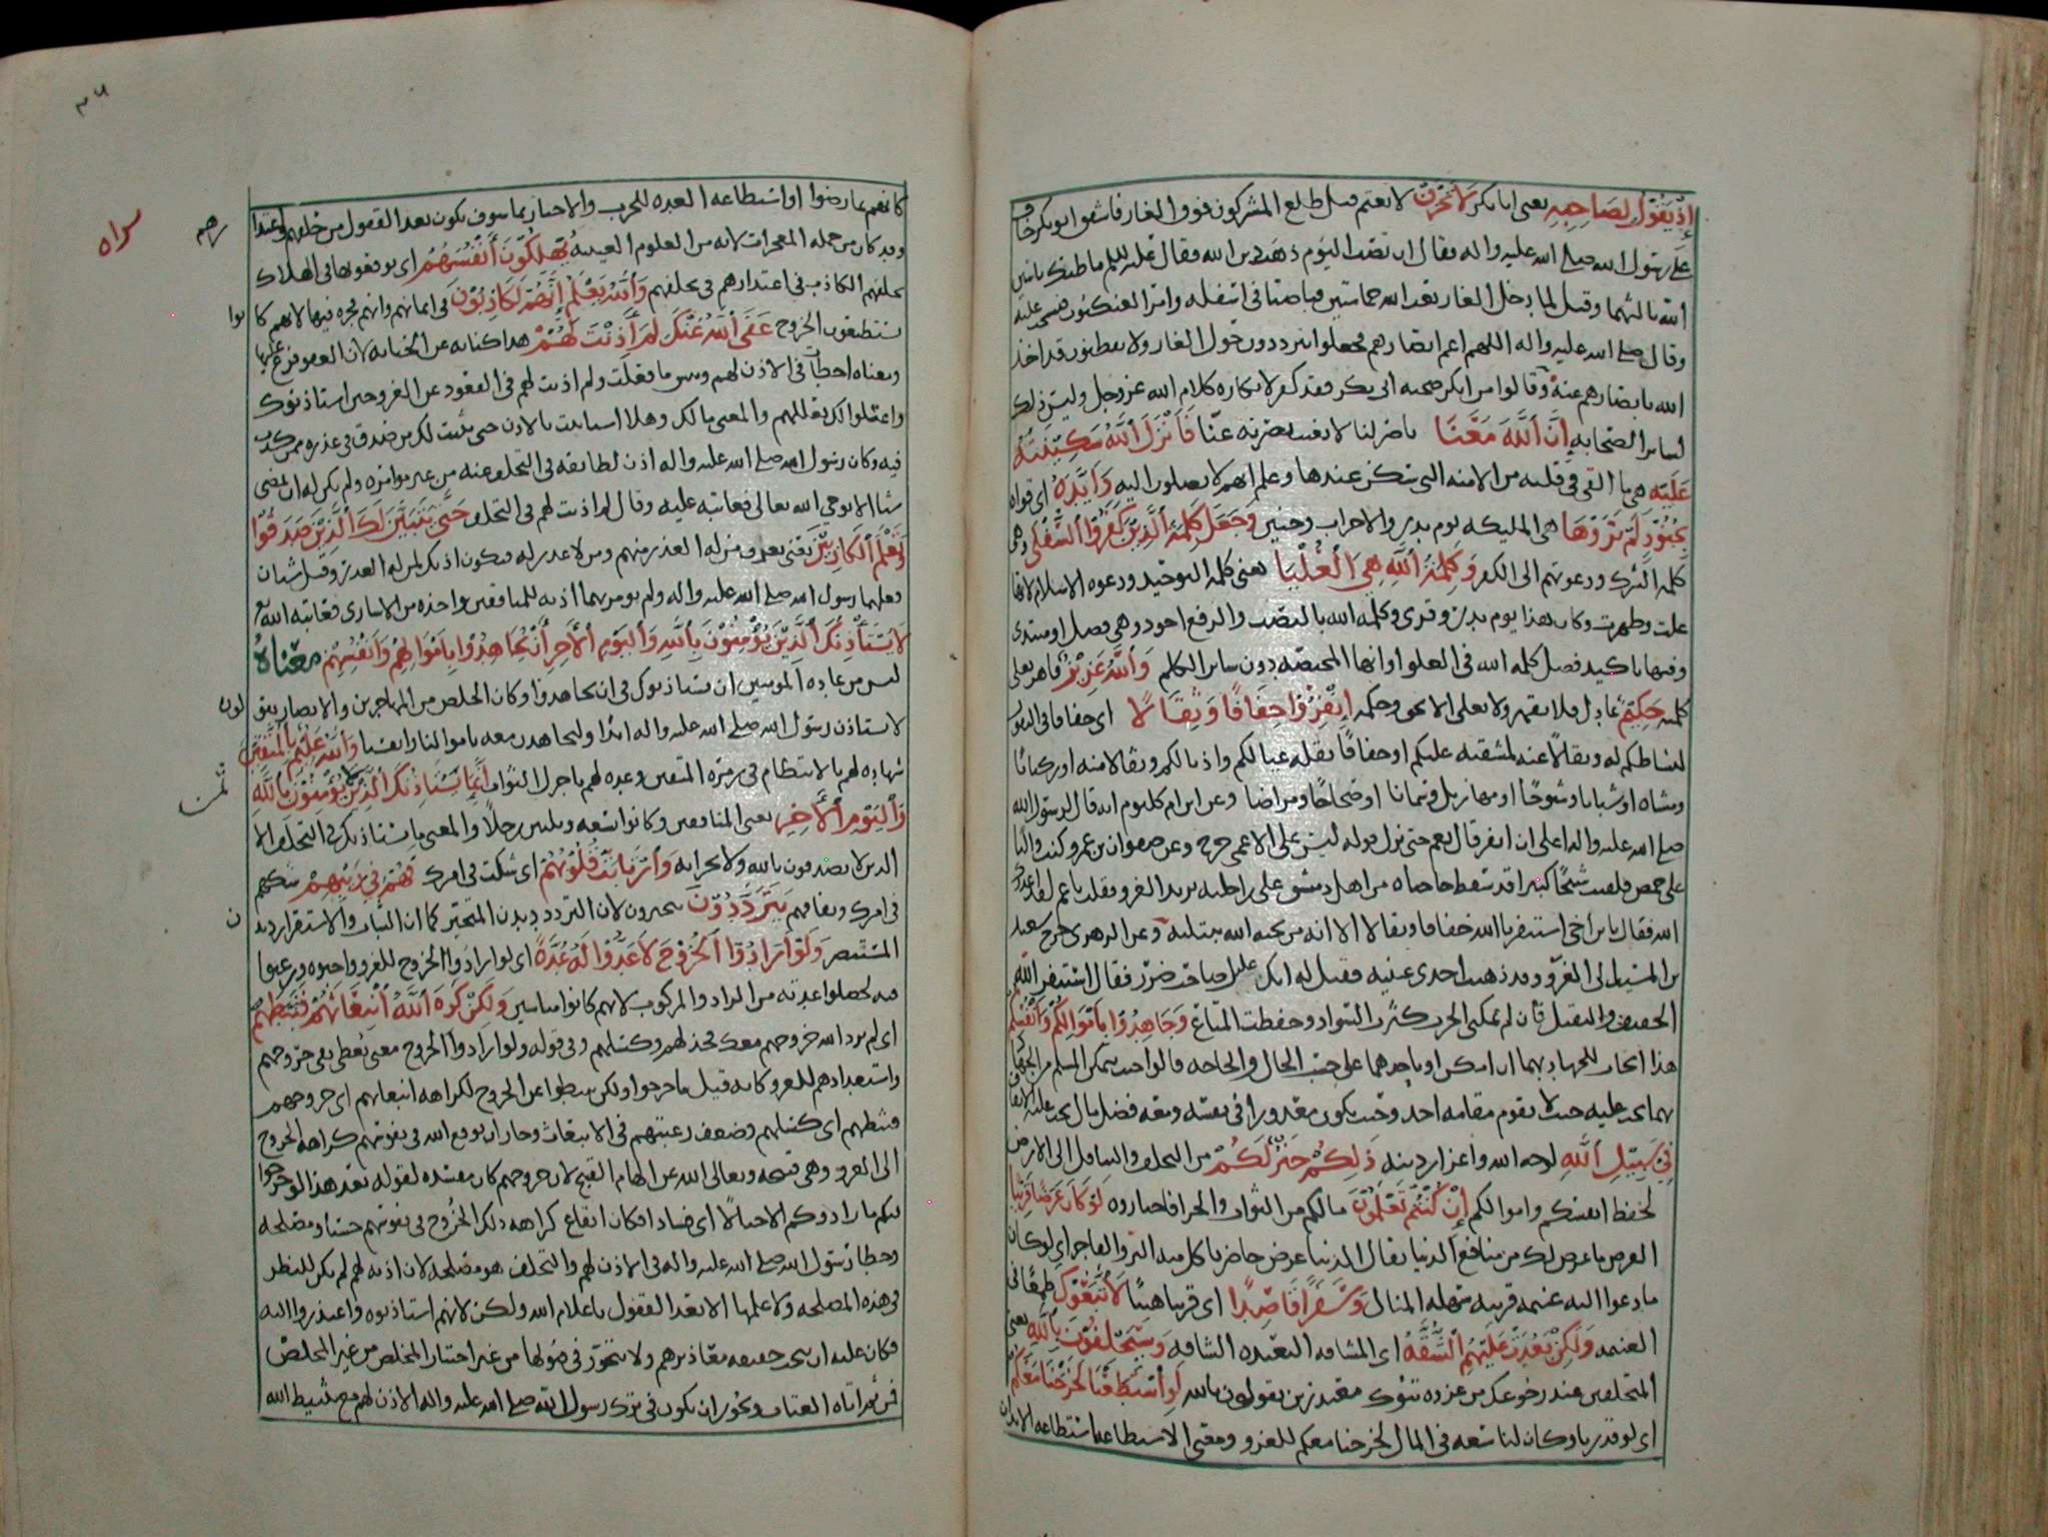 إذ يقول لصاحبه يعنى ابا بكر لا تحزن لا تغتم قيل طلع المشركون فوق الغار فاشفق ابو بكر خاف
على رسول الله صلى الله عليه واله فقال ان تصب اليوم ذهب دين الله فقال عليه السلم ما ظنك باثنين
الله ثالثهما وقيل لما دخل الغار بعث الله حمامتين فباضتا فى اسفله وامر العنكبوت فنسجت عليه
وقال صلى الله عليه واله اللهم اعم ابصارهم فجعلوا يترددون حول الغار ولا يفطنون قد اخذ
الله بابصارهم عنه وقالوا من انكر صحبه ابى بكر فقد كفر لانكاره كلام الله عز وجل وليس ذلك
لسائر الصحابه إن الله معنا ناصر لنا لا يغيب نصرته عنا فأنزل الله سكينته
عليه هى ما القى فى قلبه من الامنه التى سكن عندها وعلم انهم لا يصلون اليه وأيده اى قواه
بجنود لم تروها هى المليكه يوم بدر والاحزاب وحنين وجعل كلمة الذين كفروا السفلى وهى
كلمه الشرك ودعوتهم الى الكفر وكلمة الله هي العليا يعنى كلمه التوحيد ودعوه الاسلام لانها
علت وظهرت وكان هذا يوم بدر وقرى وكلمه الله بالنصب والرفع اجود وهى فصل او مبتدى
وفيها تاكيد فصل كلمه الله فى العلو وانها المختصه به دون سائر الكلم والله عزيز قاهر يعلى
كلمته حكيم عادل فلا يقهر ولا يعلى الا بحق وحكمه إنفروا خفافا وثقالا اى خفافا فى النفور
لنشاطكم له وثقالا عنه لمشقته عليكم او خفافا لقله عيالكم واذيالكم وثقالا منه او ركبانا
ومشاه او شبابا وشيوخا او مهازيل وسمانا او صحاحا ومراضا وعن ابن ام مكتوم انه قال لرسول الله
صلى الله عليه واله اعلى ان انفر قال نعم حتى نزل قوله ليس على الاعمى حرج وعن صفوان بن عمرو كنت واليا
على حمص فلقيت شيخا كبيرا قد سقط حاجباه من اهل دمشق على راحلته يريد الغزو فقلت يا عم لقد اعذر
الله فقال يا بن اخى استنفرنا الله خفافا وثقالا الا انه من يحبه الله يبتليه وعن الزهرى خرج سعيد
بن المسيب الى الغزو وقد ذهبت احدى عينيه فقيل له انك عليل صاحب ضرر فقال استنفر الله
الخفيف والثقيل فان لم تمكنى الحرب كثرت السواد وحفظت المتاع وجاهدوا بأموالكم وأنفسكم
هذا ايجاب للجهاد بهما ان امكن او باحدهما على حسب الحال والحاجه قالوا حيث يتمكن المسلم من الجهاد
بهما يجب عليه حيث لا يقوم مقامه احد وحيث يكون معذورا فى نفسه ومعه فضل مال يجب عليه الانفاق
في سبيل الله لوجه الله واعزاز دينه ذلكم خير لكم من التخلف والتثاقل الى الارض
لحفظ انفسكم واموالكم إن كنتم تعلمون مالكم من الثواب والجزا فاختاروه لو كان عرضا قريبا
العرض ما عرض لك من منافع الدنيا يقال الدنيا عرض حاضر ياكل منه البر والفاجر اى لو كان
ما دعوا اليه غنيمه قريبه سهله المنال وسفرا قاصدا اى قريبا هينا لاتبعوك طمعا فى
الغنيمه ولكن بعدت عليهم الشقة اى المسافه البعيده الشاقه وسيحلفون بالله يعنى
المتخلفين عند رجوعك من غزوه تبوك معتذرين يقولون بالله لو أستطعنا لخرجنا معكم
اى لو قدرنا وكان لنا سعه فى المال لخرجنا معكم للغزو ومعنى الاستطاعه استطاعه الابدان
٣٥
كانهم تمارضوا او استطاعه العده للحرب والاخبار بما سوف يكون بعد القفول من حلفهم واعتذا
رهم
سراه
وقد كان من جمله المعجزات لانه من العلوم الغيبيه يهلكون أنفسهم اى يوقعونها فى الهلاك
بحلفهم الكاذب فى اعتذارهم فى تخلفهم والله يعلم إنهم لكاذبون فى ايمانهم وانهم مجره فيها لانهم كا
نوا
يستطيعون الخروج عفى الله عنك لم أذنت لهم هذا كنايه عن الجنايه لان العفو فرع عليها
ومعناه اخطات فى الاذن لهم وبيس ما فعلت ولم اذنت لهم فى القعود عن الغزو حين استاذنوك
واعتلوا لك بعللهم والمعنى مالك وهلا استانيت بالاذن حتى يثبت لك من صدق فى عذره ممن كذب
فيه وكان رسول الله صلى الله عليه واله اذن لطائفه فى التخلف عنه من غير موامره ولم يكن له ان يمضى
شيا الا بوحى الله تعالى فعاتبه عليه وقال لم اذنت لهم فى التخلف حتى يتبين لك الذين صدقوا
وتعلم الكاذبين يعنى تعرف من له العذر منهم ومن لا عذر له فيكون اذنك لمن له العذر وقيل شيان
فعلهما رسول الله صلى الله عليه واله ولم يومر بهما اذنه للمنافقين واخذه من الاسارى فعاتبه الله تع
لا يستأذنك الذين يؤمنون بالله واليوم الأخر أن يجاهدوا بأموالهم وأنفسهم معناه
ليس من عاده المومنين ان يستاذنوك فى ان يجاهدوا وكان الخلص من المهاجرين والانصار يقو
لون
لا نستاذن رسول الله صلى الله عليه واله ابدا ولنجاهدن معه باموالنا وانفسنا والله عليم بالمتقين
شهاده لهم بالانتظام فى زمره المتقين وعده لهم باجزل الثواب إنما يستأذنك الذين لا يؤمنون بالله
ثمن
واليوم الأخر يعنى المنافقين وكانوا تسعه وثلثين رجلا والمعنى ما يستاذنك فى التخلف الا
الذين لا يصدقون بالله ولا بجزايه وأرتابت قلوبهم اى شكت فى امرك فهم في ريبهم شكهم
فى امرك ونفاقهم يترددون يتحيرون لان التردد ديدن المتحير كما ان الثبات والاستقرار ديد
ن
المستبصر ولو أرادوا الخروج لأعدوا له عدة اى لو ارادوا الخروج للغزو واحبوه ورغبوا
فيه لحصلوا عدته من الزاد والمركوب لانهم كانوا مياسير ولكن كره الله أنبعاثهم فثبطهم
اى لم يرد الله خروجهم معك فخذلهم وكسلهم وفى قوله ولو ارادوا الخروج معنى يعطى نفى خروجهم
واستعدادهم للغزو كانه قيل ما خرجوا ولكن ثبطوا عن الخروج لكراهه انبعاثهم اى خروجهم
فثبطهم اى كسلهم وضعف رغبتهم فى الانبعاث وجاز ان يوقع الله فى نفوسهم كراهه الخروج
الى الغزو وهى قبيحه وتعالى الله عن الهام القبيح لان خروجهم كان مفسده لقوله بعد هذا لو خرجوا
فيكم ما زادوكم الا خبالا اى فسادا فكان ايقاع كراهه ذلك الخروج فى نفوسهم حسنا ومصلحه
وخطا رسول الله صلى الله عليه واله فى الاذن لهم والتخلف هو مصلحه لان اذنه لهم لم يكن للنظر
فى هذه المصلحه ولا علمها الا بعد القفول باعلام الله ولكن لانهم استاذنوه واعتذروا اليه
فكان عليه ان يبحث حقيقه معاذيرهم ولا يتجوز فى قبولها من غير اختبار المخلص من غير المخلص
فمن ثم اتاه العتاب ويجوز ان يكون فى ترك رسول الله صلى الله عليه واله الاذن لهم مع تثبيط الله